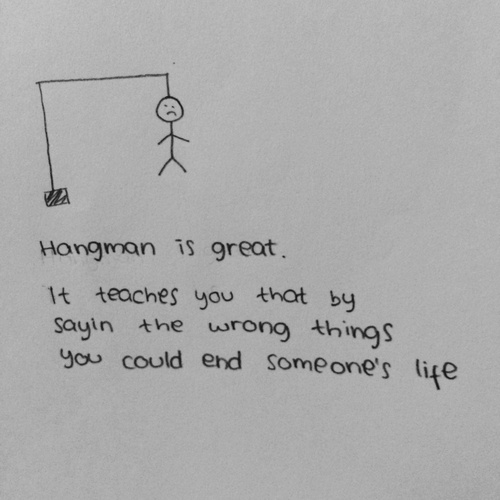 Hangman is great.
It teaches you that by
sayin the wrong things
you could end someone's life